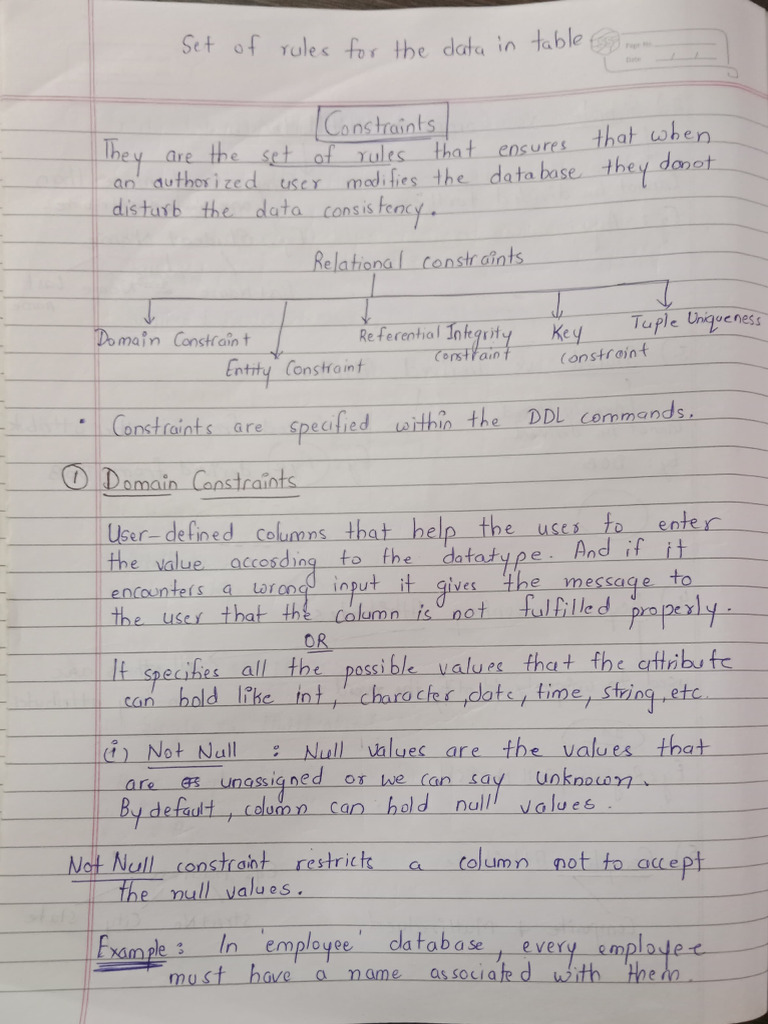 Set of rules for the data in table
Page No.
Date
Constraints
They are the set of rules that ensures that when
an authorized user modifies the database they donot
disturb the data consistency.
Relational constraints
Domain Constraint
Entity Constraint
Referential Integrity
constraint
Key
constraint
Tuple Uniqueness
• Constraints are specified within the DDL commands.
① Domain Constraints
User-defined columns that help the user to enter
the value according to the datatype. And if it
encounters a wrong input it gives the message to
the user that the column is not fulfilled properly.
OR
It specifies all the possible values that the attribute
can hold like int, character, date, time, string, etc.
(i) Not Null : Null values are the values that
are unassigned or we can say unknown.
By default, column can hold null values.
Not Null constraint restricts a column not to accept
the null values.
Example : In 'employee' database, every employee
must have a name associated with them.